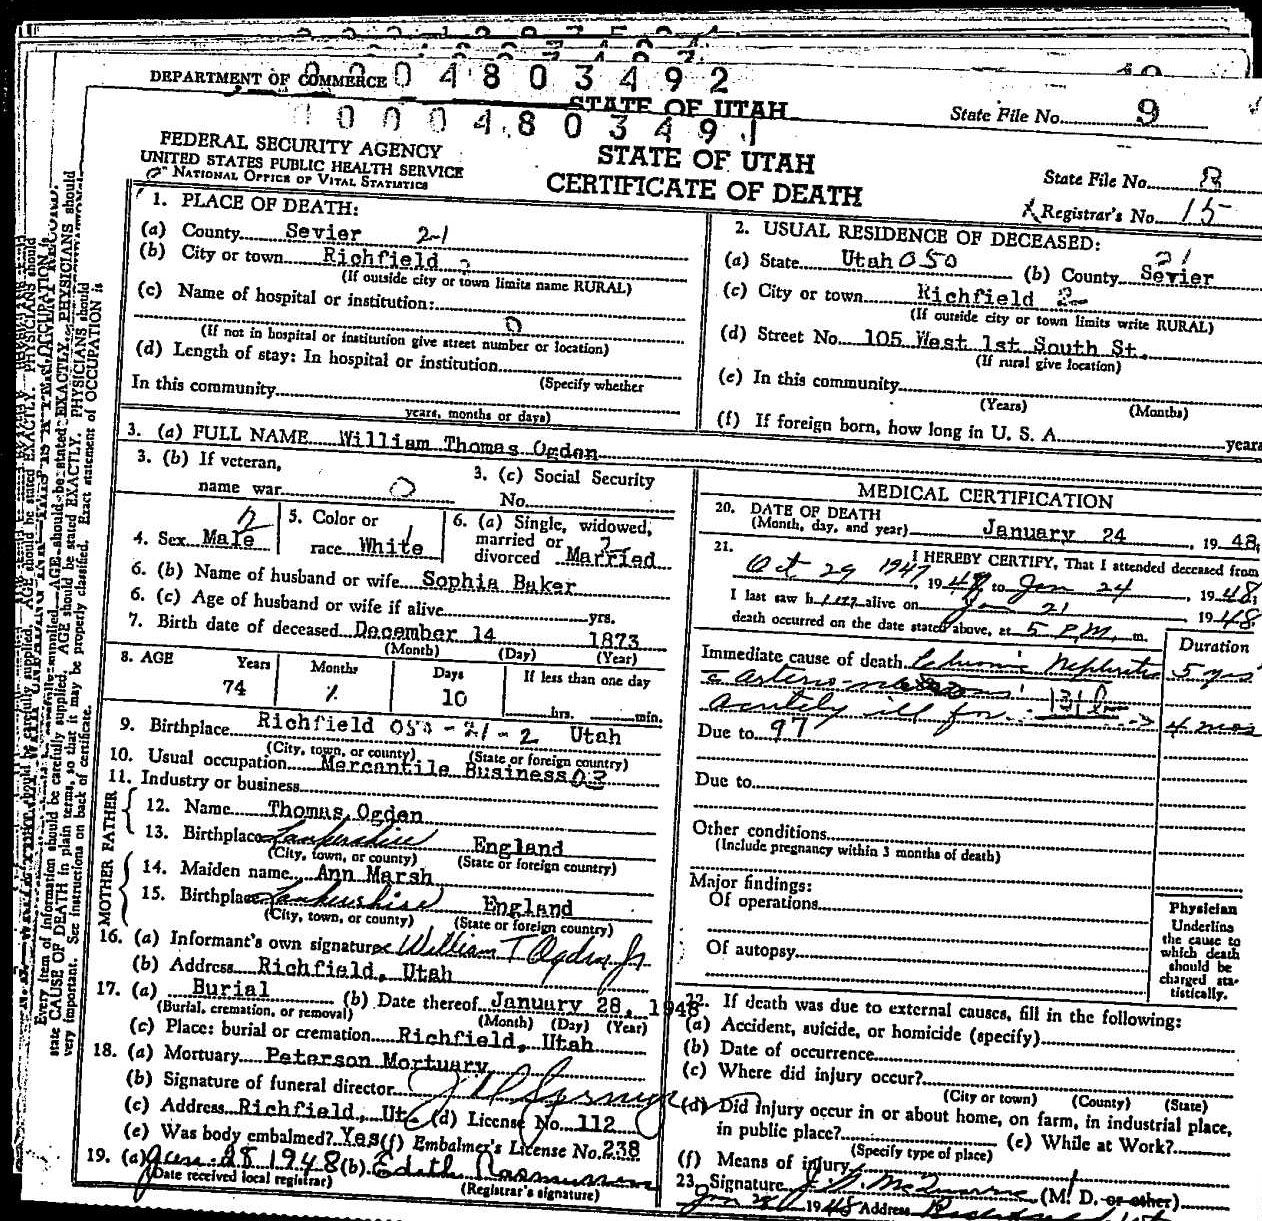 DEPARTMENT OF COMMERCE 0004803492
STATE OF UTAH
State File No. 9
00004803491
FEDERAL SECURITY AGENCY
UNITED STATES PUBLIC HEALTH SERVICE
NATIONAL OFFICE OF VITAL STATISTICS
STATE OF UTAH
CERTIFICATE OF DEATH
State File No. 8
Registrar's No. 15
1. PLACE OF DEATH:
(a) County Sevier 2-1
(b) City or town Richfield 2
(If outside city or town limits name RURAL)
(c) Name of hospital or institution:
0
(If not in hospital or institution give street number or location)
(d) Length of stay: In hospital or institution
(Specify whether
In this community
years, months or days)
2. USUAL RESIDENCE OF DECEASED:
(a) State Utah 050 (b) County Sevier 21
(c) City or town Richfield 2
(If outside city or town limits write RURAL)
(d) Street No. 105 West 1st South St.
(If rural give location)
(e) In this community
(Years) (Months)
(f) If foreign born, how long in U. S. A. years
3. (a) FULL NAME William Thomas Ogden
3. (b) If veteran,
name war 0
3. (c) Social Security
No.
4. Sex Male
5. Color or
race White
6. (a) Single, widowed,
married or
divorced Married
6. (b) Name of husband or wife Sophia Baker
6. (c) Age of husband or wife if alive yrs.
7. Birth date of deceased December 14 1873
(Month) (Day) (Year)
8. AGE Years Months Days If less than one day
74 1 10 hrs. min.
9. Birthplace Richfield 050-21-2 Utah
(City, town, or county) (State or foreign country)
10. Usual occupation Mercantile Business 03
11. Industry or business
FATHER
12. Name Thomas Ogden
13. Birthplace Lankershire England
(City, town, or county) (State or foreign country)
MOTHER
14. Maiden name Ann Marsh
15. Birthplace Lankershire England
(City, town, or county) (State or foreign country)
16. (a) Informant's own signature William T Ogden Jr
(b) Address Richfield, Utah
17. (a) Burial (b) Date thereof January 28, 1948
(Burial, cremation, or removal) (Month) (Day) (Year)
(c) Place: burial or cremation Richfield, Utah
18. (a) Mortuary Peterson Mortuary
(b) Signature of funeral director
(c) Address Richfield, Ut (d) License No. 112
(e) Was body embalmed? Yes (f) Embalmer's License No. 238
19. (a) Jan 28 1948 (b) Edith Rasmussen
(Date received local registrar) (Registrar's signature)
MEDICAL CERTIFICATION
20. DATE OF DEATH
(Month, day, and year) January 24, 1948;
21. I HEREBY CERTIFY, That I attended deceased from
Oct 29 1947, 1948 to Jan 24 1948;
I last saw him alive on Jan 21 1948
death occurred on the date stated above, at 5 P.M. m.
Duration
Immediate cause of death Chronic Nephritis 5 yrs
131
Acutely ill for 4 mos
Due to 97
Due to
Other conditions
(Include pregnancy within 3 months of death)
Major findings:
Of operations
Of autopsy
Physician
Underline
the cause to
which death
should be
charged sta-
tistically.
22. If death was due to external causes, fill in the following:
(a) Accident, suicide, or homicide (specify)
(b) Date of occurrence
(c) Where did injury occur?
(City or town) (County) (State)
(d) Did injury occur in or about home, on farm, in industrial place,
in public place? (e) While at Work?
(Specify type of place)
(f) Means of injury
23. Signature (M. D. or other)
Jan 28 1948 Address
Every item of information should be carefully supplied. AGE should be stated EXACTLY. PHYSICIANS should
state CAUSE OF DEATH in plain terms, so that it may be properly classified. Exact statement of OCCUPATION is
very important. See instructions on back of certificate.